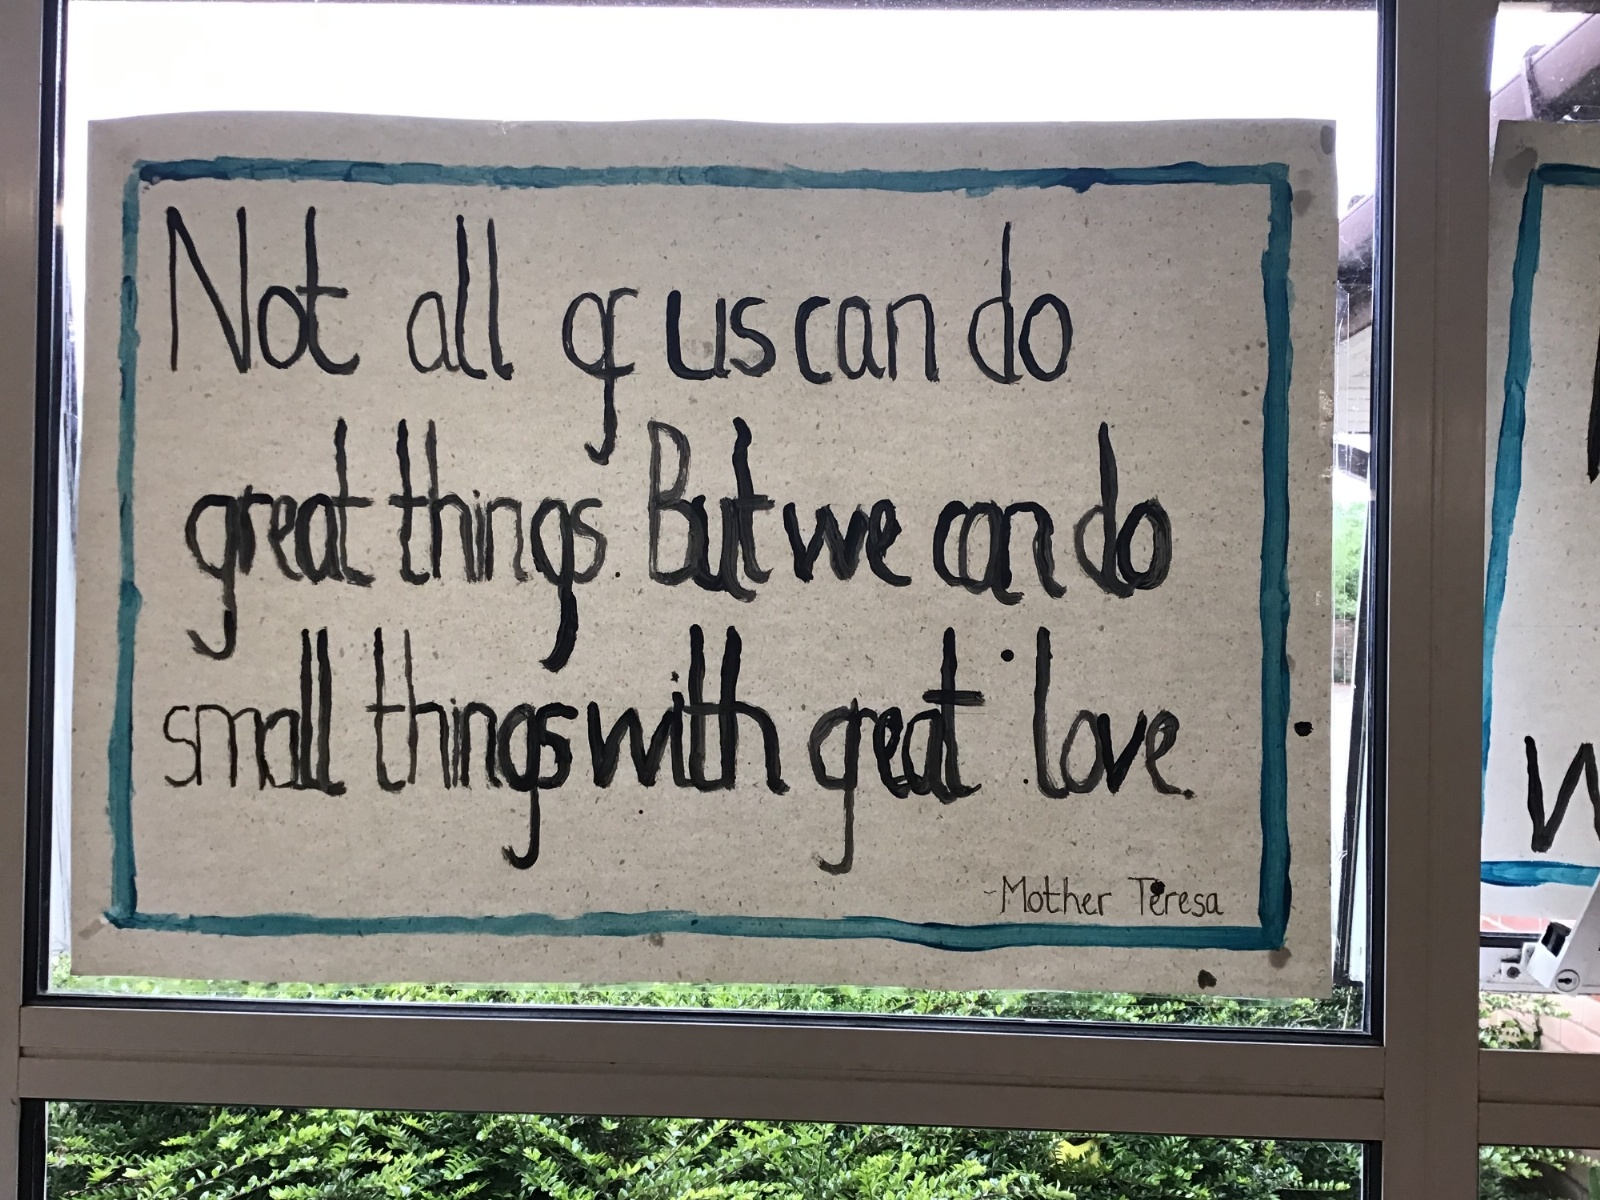 Not all of us can do
great things. But we can do
small things with great love.
~Mother Teresa
W